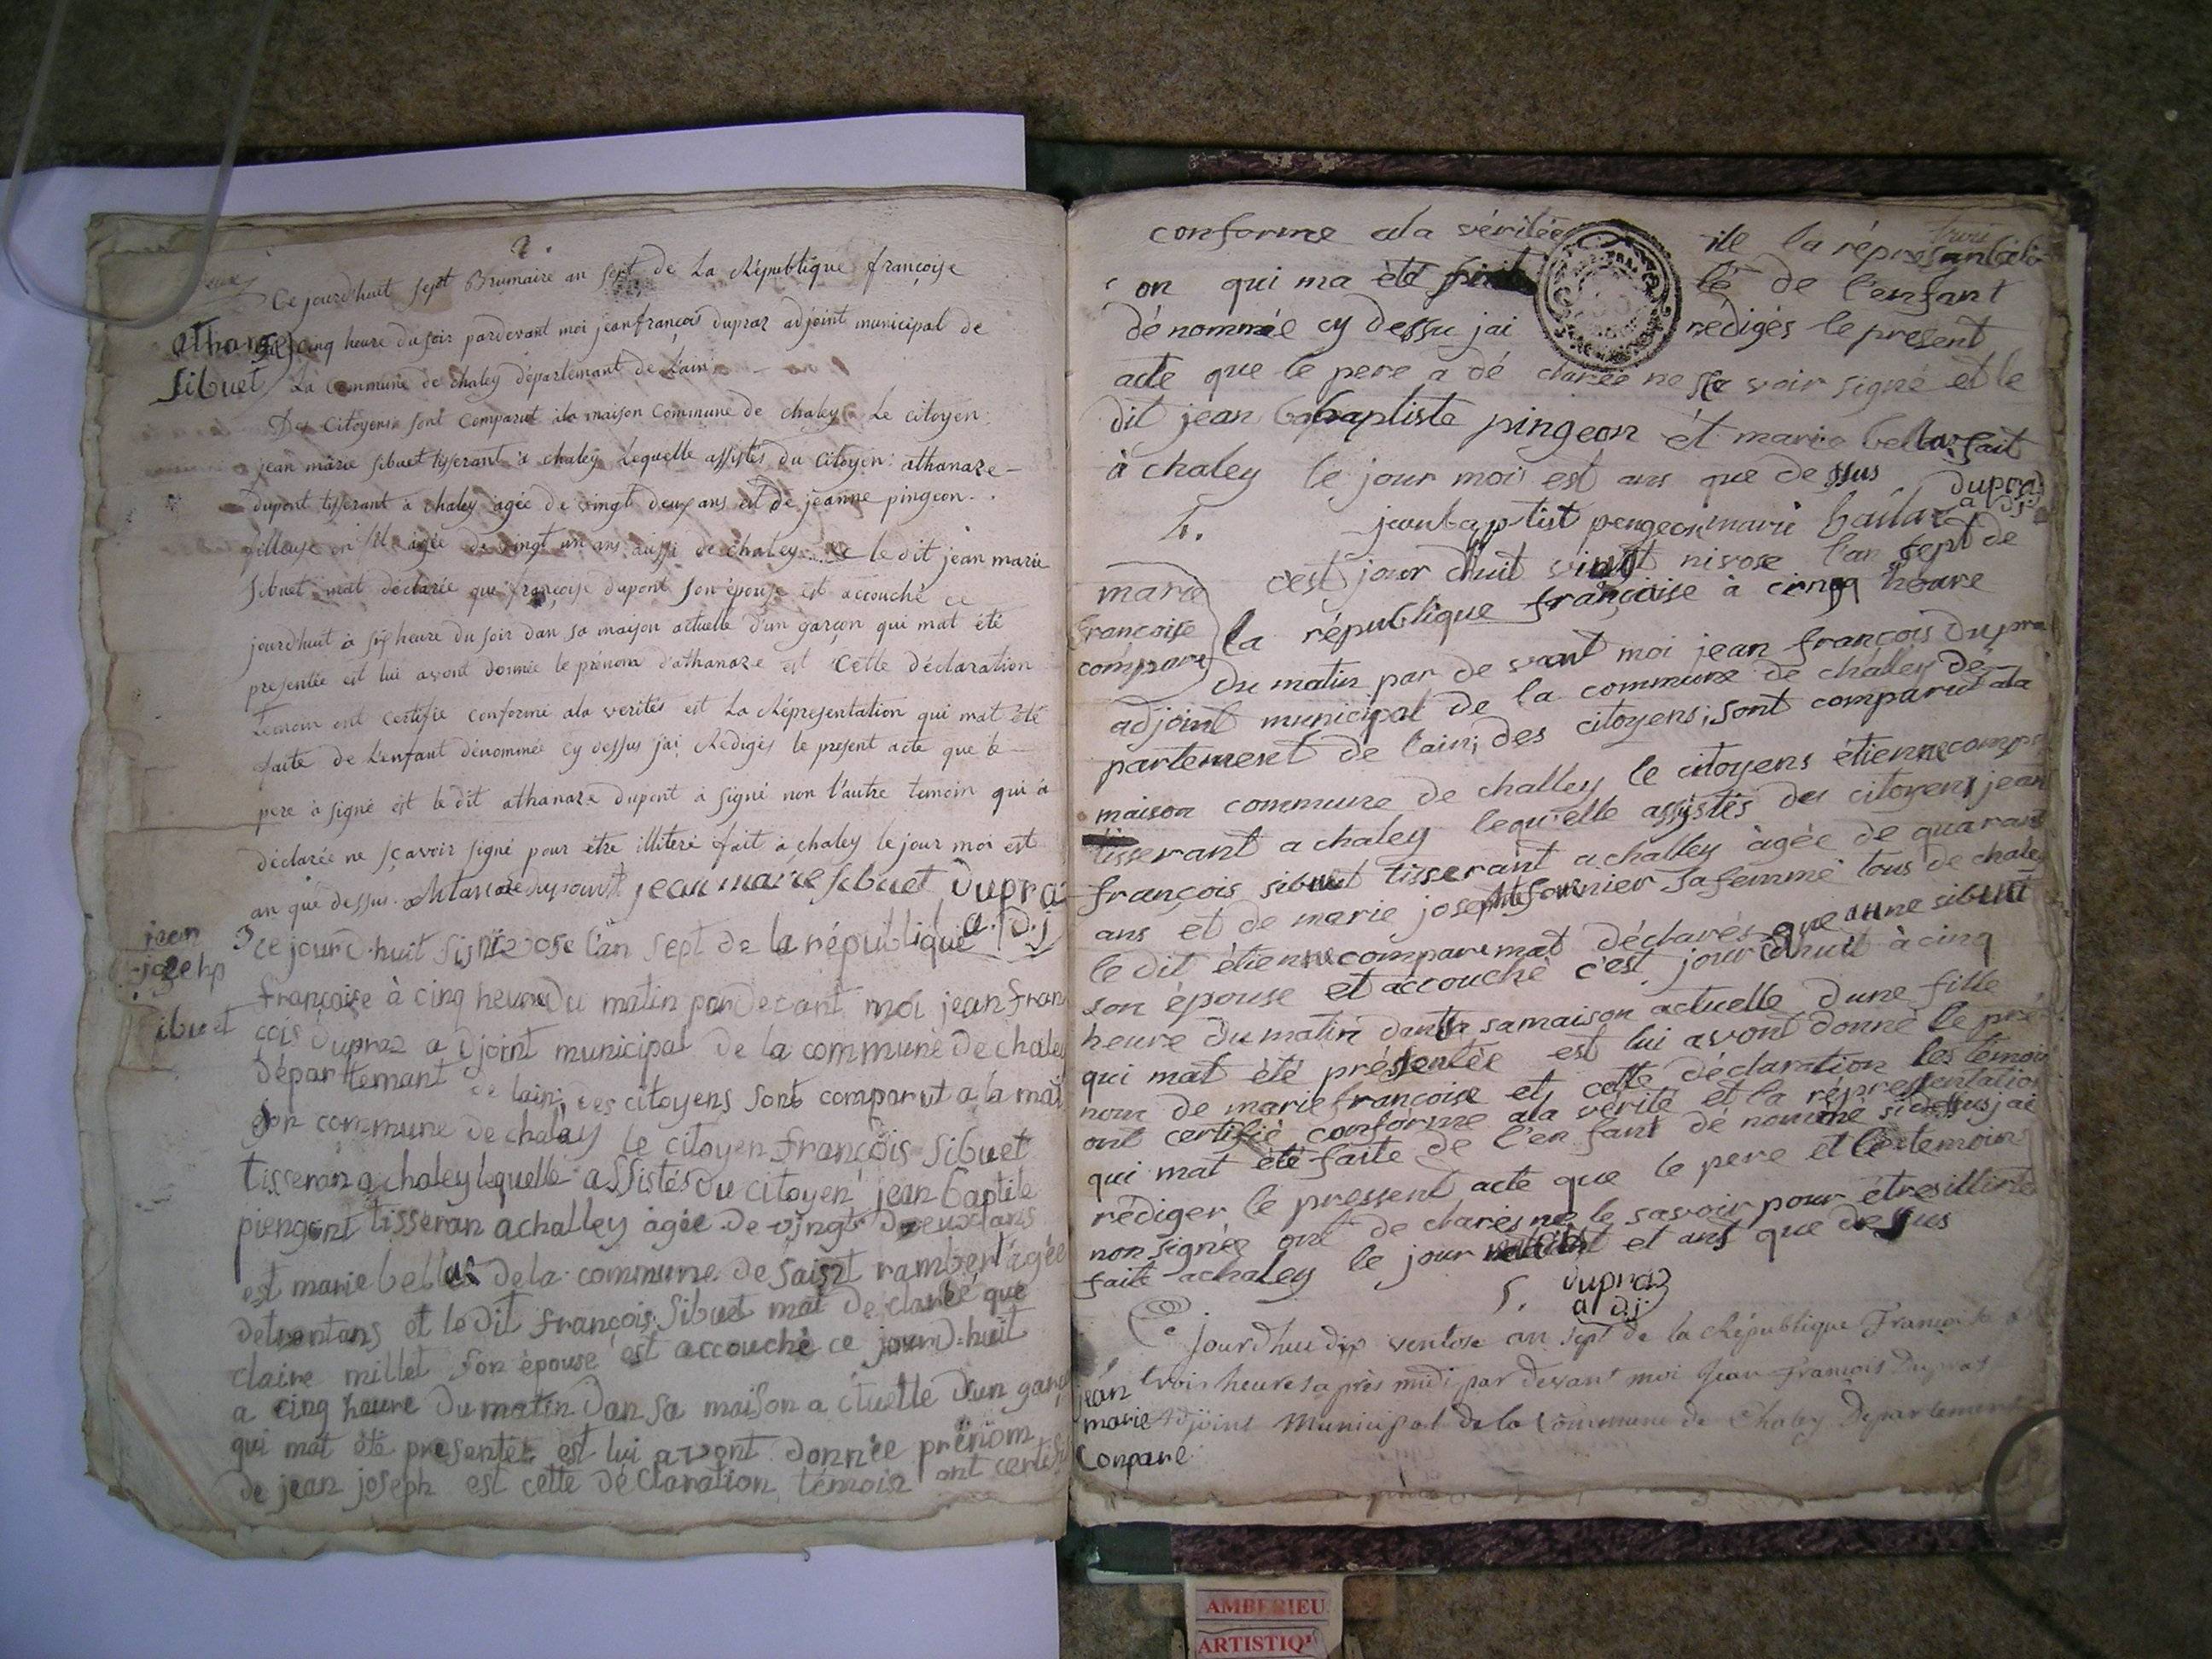 2.
Ce jourd'huit sept Brumaire an sept de La République françoise
athanaze
Sibuet
cinq heure du soir pardevant moi jean françois dupraz adjoint municipal de
La Commune de chaley département de Lain
Des Citoyens sont Comparut ala maison Commune de chaley Le citoyen
jean marie sibuet tisserant à chaley Lequelle assistés du Citoyen athanaze
dupont tisserant à chaley agée de vingt deux ans est de jeanne pingeon
filleuse agée de vingt un ans aussi de chaley le dit jean marie
Sibuet mat déclarée que françoise dupont son épouse est accouché ce
jourd'huit à six heure du soir dan sa maison actuelle d'un garçon qui mat été
presentée est lui avont donnée le prénom d'athanaze est Cette déclaration
temoin ont certifie conforme ala verités est La Répresentation qui mat été
faite de L'enfant dénommée cy dessus j'ai Redigés le present acte que le
pere à signé est le dit athanaze dupont à signé non l'autre temoin qui à
déclarée ne sçavoir signé pour etre illiteré fait à chaley le jour moi est
an que dessus. Atanaze dupont jean marie sibuet Dupraz
a.d.j
jean
jozehp
ibuet
3 ce jourd-huit sis nivose l'an sept de la république
françoise à cinq heure du matin pardevant moi jean fran
cois dupraz adjoint municipal de la commune de chaley
département de lain, des citoyens sont comparut a la mai
son commune de chaley le citoyen françois sibuet
tisseran a chaley lequelle assistés du citoyen jean baptite
piengont tisseran a challey àgée de vingt deux ans
est marie bellaz de la commune de saint rambert agée
de trentans et le dit françois sibuet mat declaré que
claire millet son épouse est accouché ce jourd-huit
a cinq heure du matin dan sa maison actuelle d'un garç
qui mat été presentée est lui avont donnée prénom
de jean joseph est cette déclaration témoin ont certifi
conforme ala véritée ile la répresantati
on qui ma été lé de l'enfant
dénommée cy dessu jai redigés le present
acte que le pere a dé clarée ne sa voir signé et le
dit jean baptiste pingeon ét marie bellaz fait
à chaley le jour moi est ans que dessus dupraz
a dj
4. jean baptist pengeon marie bailaz
marie
francoise
compare
c'est jour d'huit vingt nivose l'an sept de
la république françoise à cinq heure
du matin par de vant moi jean françois dupra
adjoint municipal de la commune de challey de-
partement de l'ain; des citoyens; sont comparut ala
maison commune de challey le citoyens étienne compa
tisserant a chaley lequ'elle assistés des citoyens jean
françois sibuet tisserant a challey àgée de quarant
ans et de marie josephte fournier sa femme tous de chaley
le dit étienne compare mat déclarés que anne sibuet
son épouse et accouché c'est jour d'huit à cinq
heure du matin dant sa maison actuelle d'une fille
qui mat été présentée est lui avont donné le pré-
nom de marie francoise et cette déclaration les témoin
ont certifié conforme ala vérité et la répressentation
qui mat été faite de l'en fant dé nommé si dessus jai
rédiger le pressent acte que le pere et les temoins
non signée ont de clarés ne le savoir pour étres illiterés
faite achaley le jour et ans que dessus
5. dupraz
a dj
jean
marie
Conpare
Ce Jourdhui dix ventose an sept de la République Françoise a
trois heures après midi par devant moi Jean François Dupras
Adjoint Municipal de la Commune de Chaley Departement
AMBERIEU
ARTISTIQU